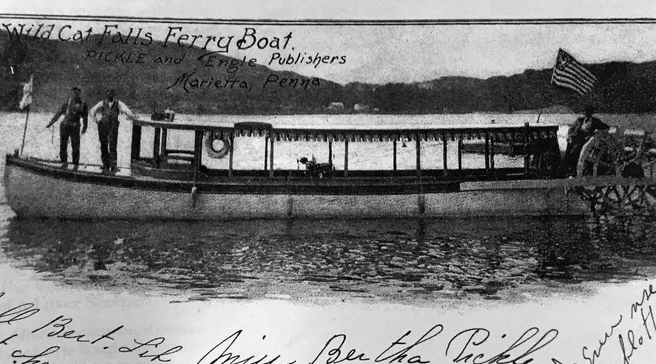 Wild Cat Falls Ferry Boat.
PICKLE and Engle Publishers
Marietta, Penna
Bert.
Miss Bertha Pickle